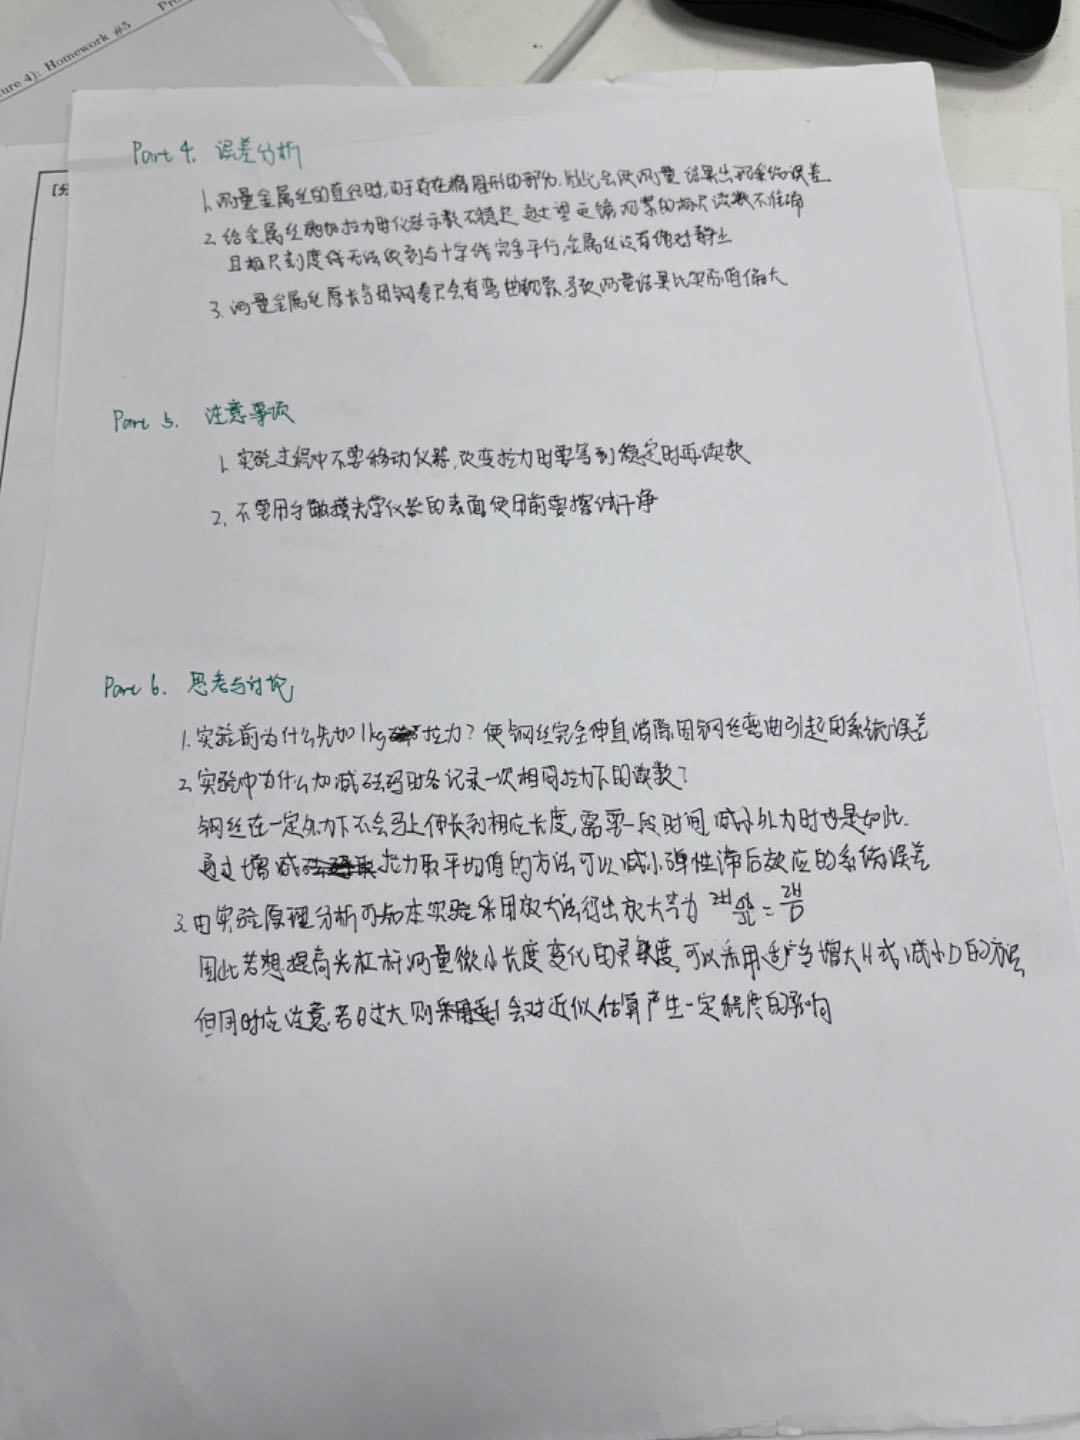 ure 4): Homework #5
Part 4. 误差分析
1. 测量金属丝的直径时,由于存在椭圆形的部分,因此会使测量结果出现系统误差
2. 给金属丝施加拉力时仪器示数不稳定 通过望远镜观察的标尺读数不准确
且标尺刻度线无法做到与十字线完全平行,金属丝没有绝对静止
3. 测量金属丝原长时钢卷尺会有弯曲现象导致测量结果比实际值偏大
Part 5. 注意事项
1. 实验过程中不要移动仪器,改变拉力时要等到稳定时再读数
2. 不要用手触摸光学仪器的表面使用前要擦拭干净
Part 6. 思考与讨论
1. 实验前为什么先加1kg拉力? 使钢丝完全伸直消除因钢丝弯曲引起的系统误差
2. 实验中为什么加减砝码时各记录一次相同拉力下的读数?
钢丝在一定外力下不会马上伸长到相应长度,需要一段时间,减小外力时也是如此.
通过增减拉力取平均值的方法可以减小弹性滞后效应的系统误差
3. 由实验原理分析可知本实验采用放大法得出放大率为 = 2H/D
因此若想提高光杠杆测量微小长度变化的灵敏度,可以采用适当增大H或减小D的方法
但同时应注意,若过大,则会对近似估算产生一定程度的影响